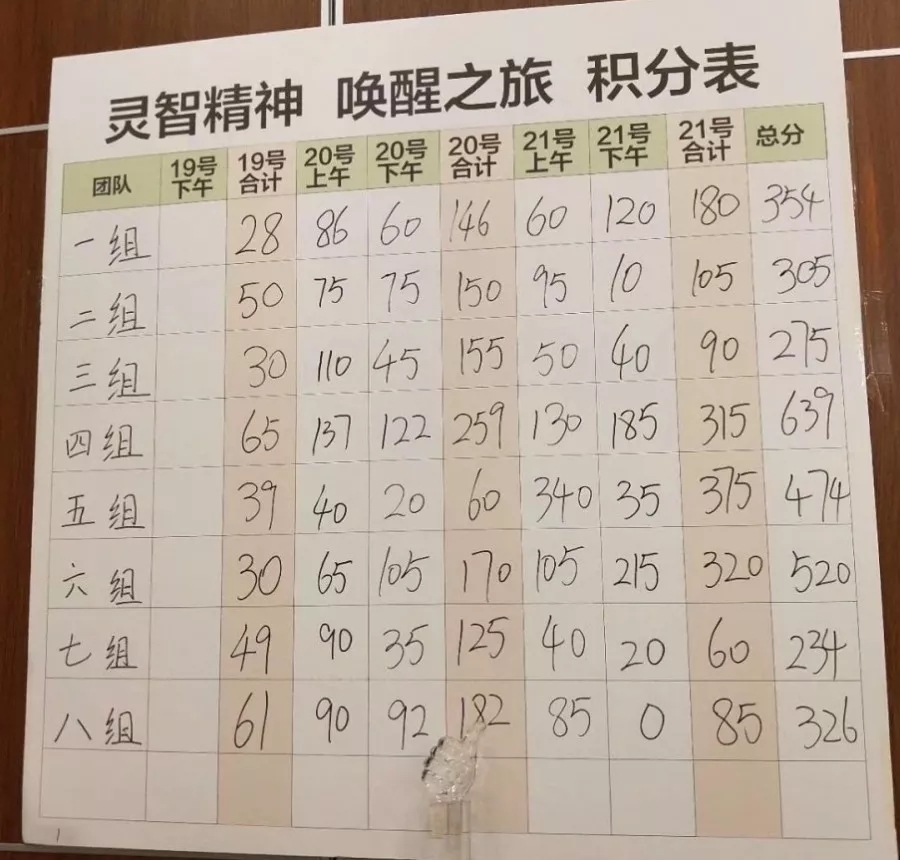 灵智精神 唤醒之旅 积分表
团队 19号下午 19号合计 20号上午 20号下午 20号合计 21号上午 21号下午 21号合计 总分
一组 28 86 60 146 60 120 180 354
二组 50 75 75 150 95 10 105 305
三组 30 110 45 155 50 40 90 275
四组 65 137 122 259 130 185 315 639
五组 39 40 20 60 340 35 375 474
六组 30 65 105 170 105 215 320 520
七组 49 90 35 125 40 20 60 234
八组 61 90 92 182 85 0 85 326